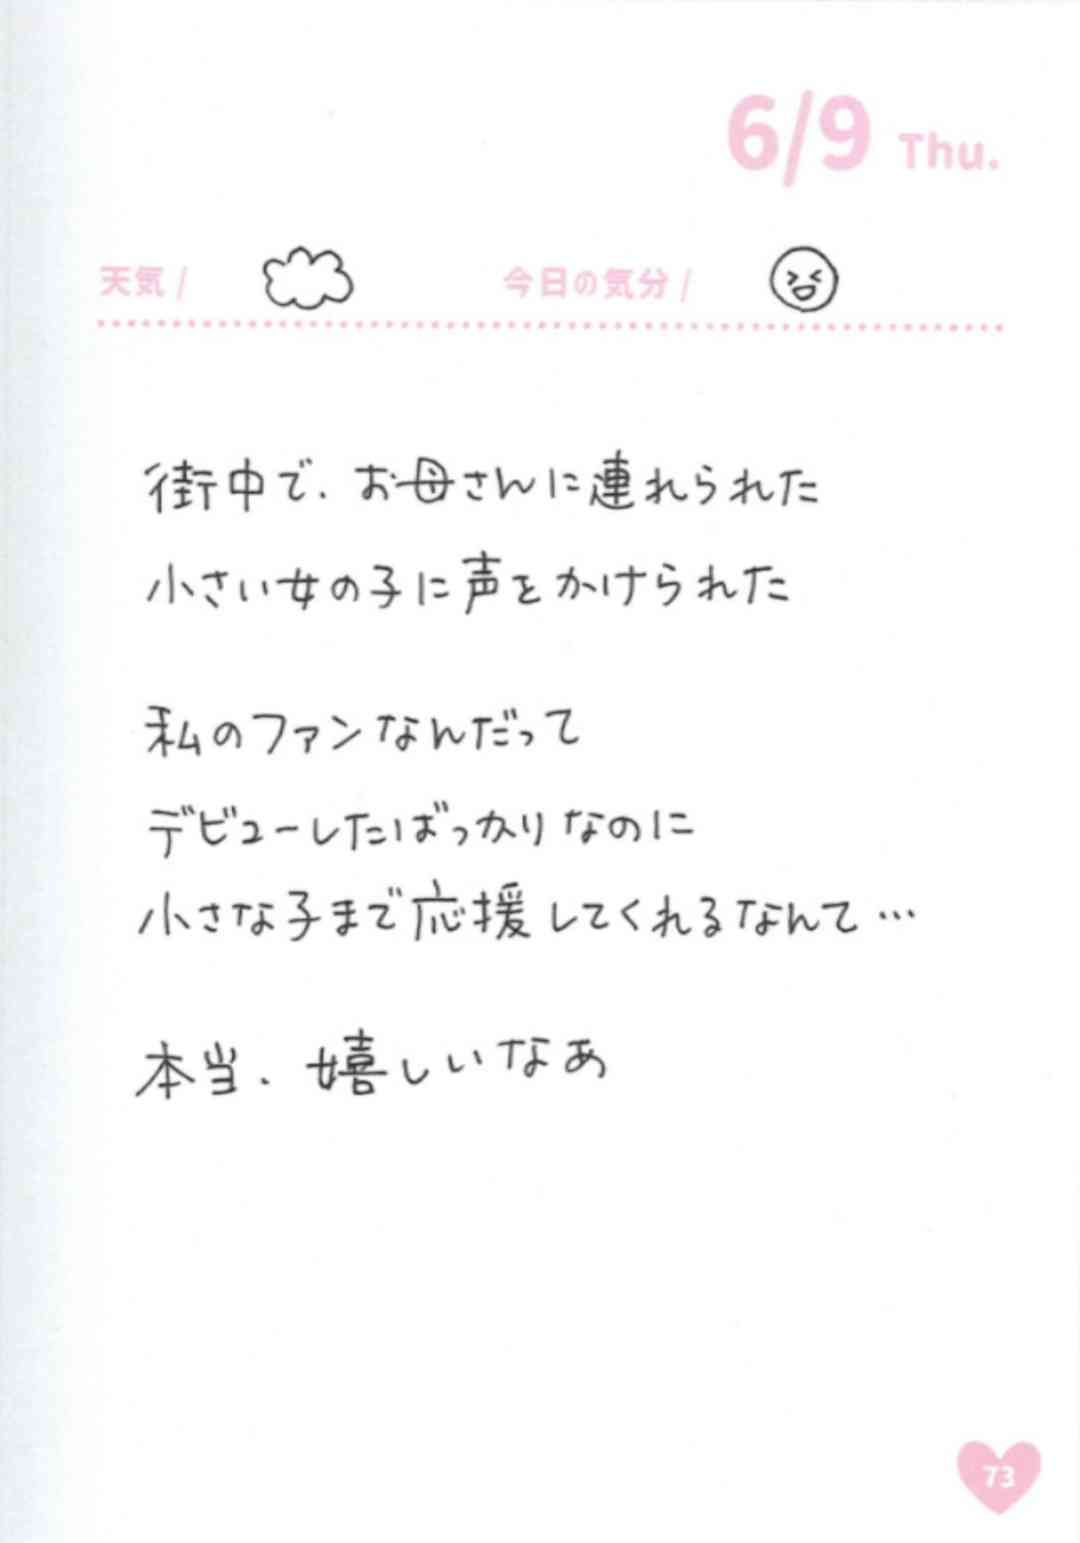 6/9 Thu.
天気/ 今日の気分/
街中で、お母さんに連れられた
小さい女の子に声をかけられた
私のファンなんだって
デビューしたばっかりなのに
小さな子まで応援してくれるなんて…
本当、嬉しいなあ
73